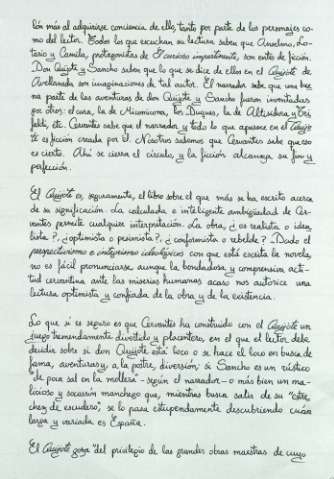 ción más al adquirirse conciencia de ello, tanto por parte de los personajes co-
mo del lector. Todos los que escuchan su lectura saben que Anselmo, Lo-
tario y Camila, protagonistas de El curioso impertinente, son entes de ficción.
Don Quijote y Sancho saben que lo que se dice de ellos en el Quijote de
Avellaneda son imaginaciones de tal autor. El narrador sabe que una bue-
na parte de las aventuras de don Quijote y Sancho fueron inventadas
por otros: el cura, la de Micomicona, los Duques, la de Altisidora y Tri-
faldi, etc. Cervantes sabe que el narrador y todo lo que aparece en el Quijo-
te es ficción creada por él. Nosotros sabemos que Cervantes sabe que eso
es cierto. Ahí se cierra el círculo, y la ficción alcanza su fin y
perfección.
El Quijote es, seguramente, el libro sobre el que más se ha escrito acerca
de su significación. La calculada e inteligente ambigüedad de Cer-
vantes permite cualquier interpretación. La obra, ¿es realista o idea-
lista?, ¿optimista o pesimista?, ¿conformista o rebelde? Desde el
perspectivismo e antagonismo ideológicos con que está escrita la novela,
no es fácil pronunciarse, aunque la bondadosa y comprensiva acti-
tud cervantina ante las miserias humanas acaso nos autorice una
lectura optimista y confiada de la obra y de la existencia.
Lo que sí es seguro es que Cervantes ha construido con el Quijote un
juego tremendamente divertido y placentero, en el que el lector debe
decidir sobre si don Quijote está loco o se hace el loco en busca de
fama, aventuras y, a la postre, diversión; si Sancho es un rústico
"de poca sal en la mollera" -según el narrador- o más bien un ma-
licioso y socarrón manchego que, mientras busca salir de su "estre-
chez de escudero", se lo pasa estupendamente descubriendo cuán
larga y variada es España.
El Quijote goza "del privilegio de las grandes obras maestras de cuyo